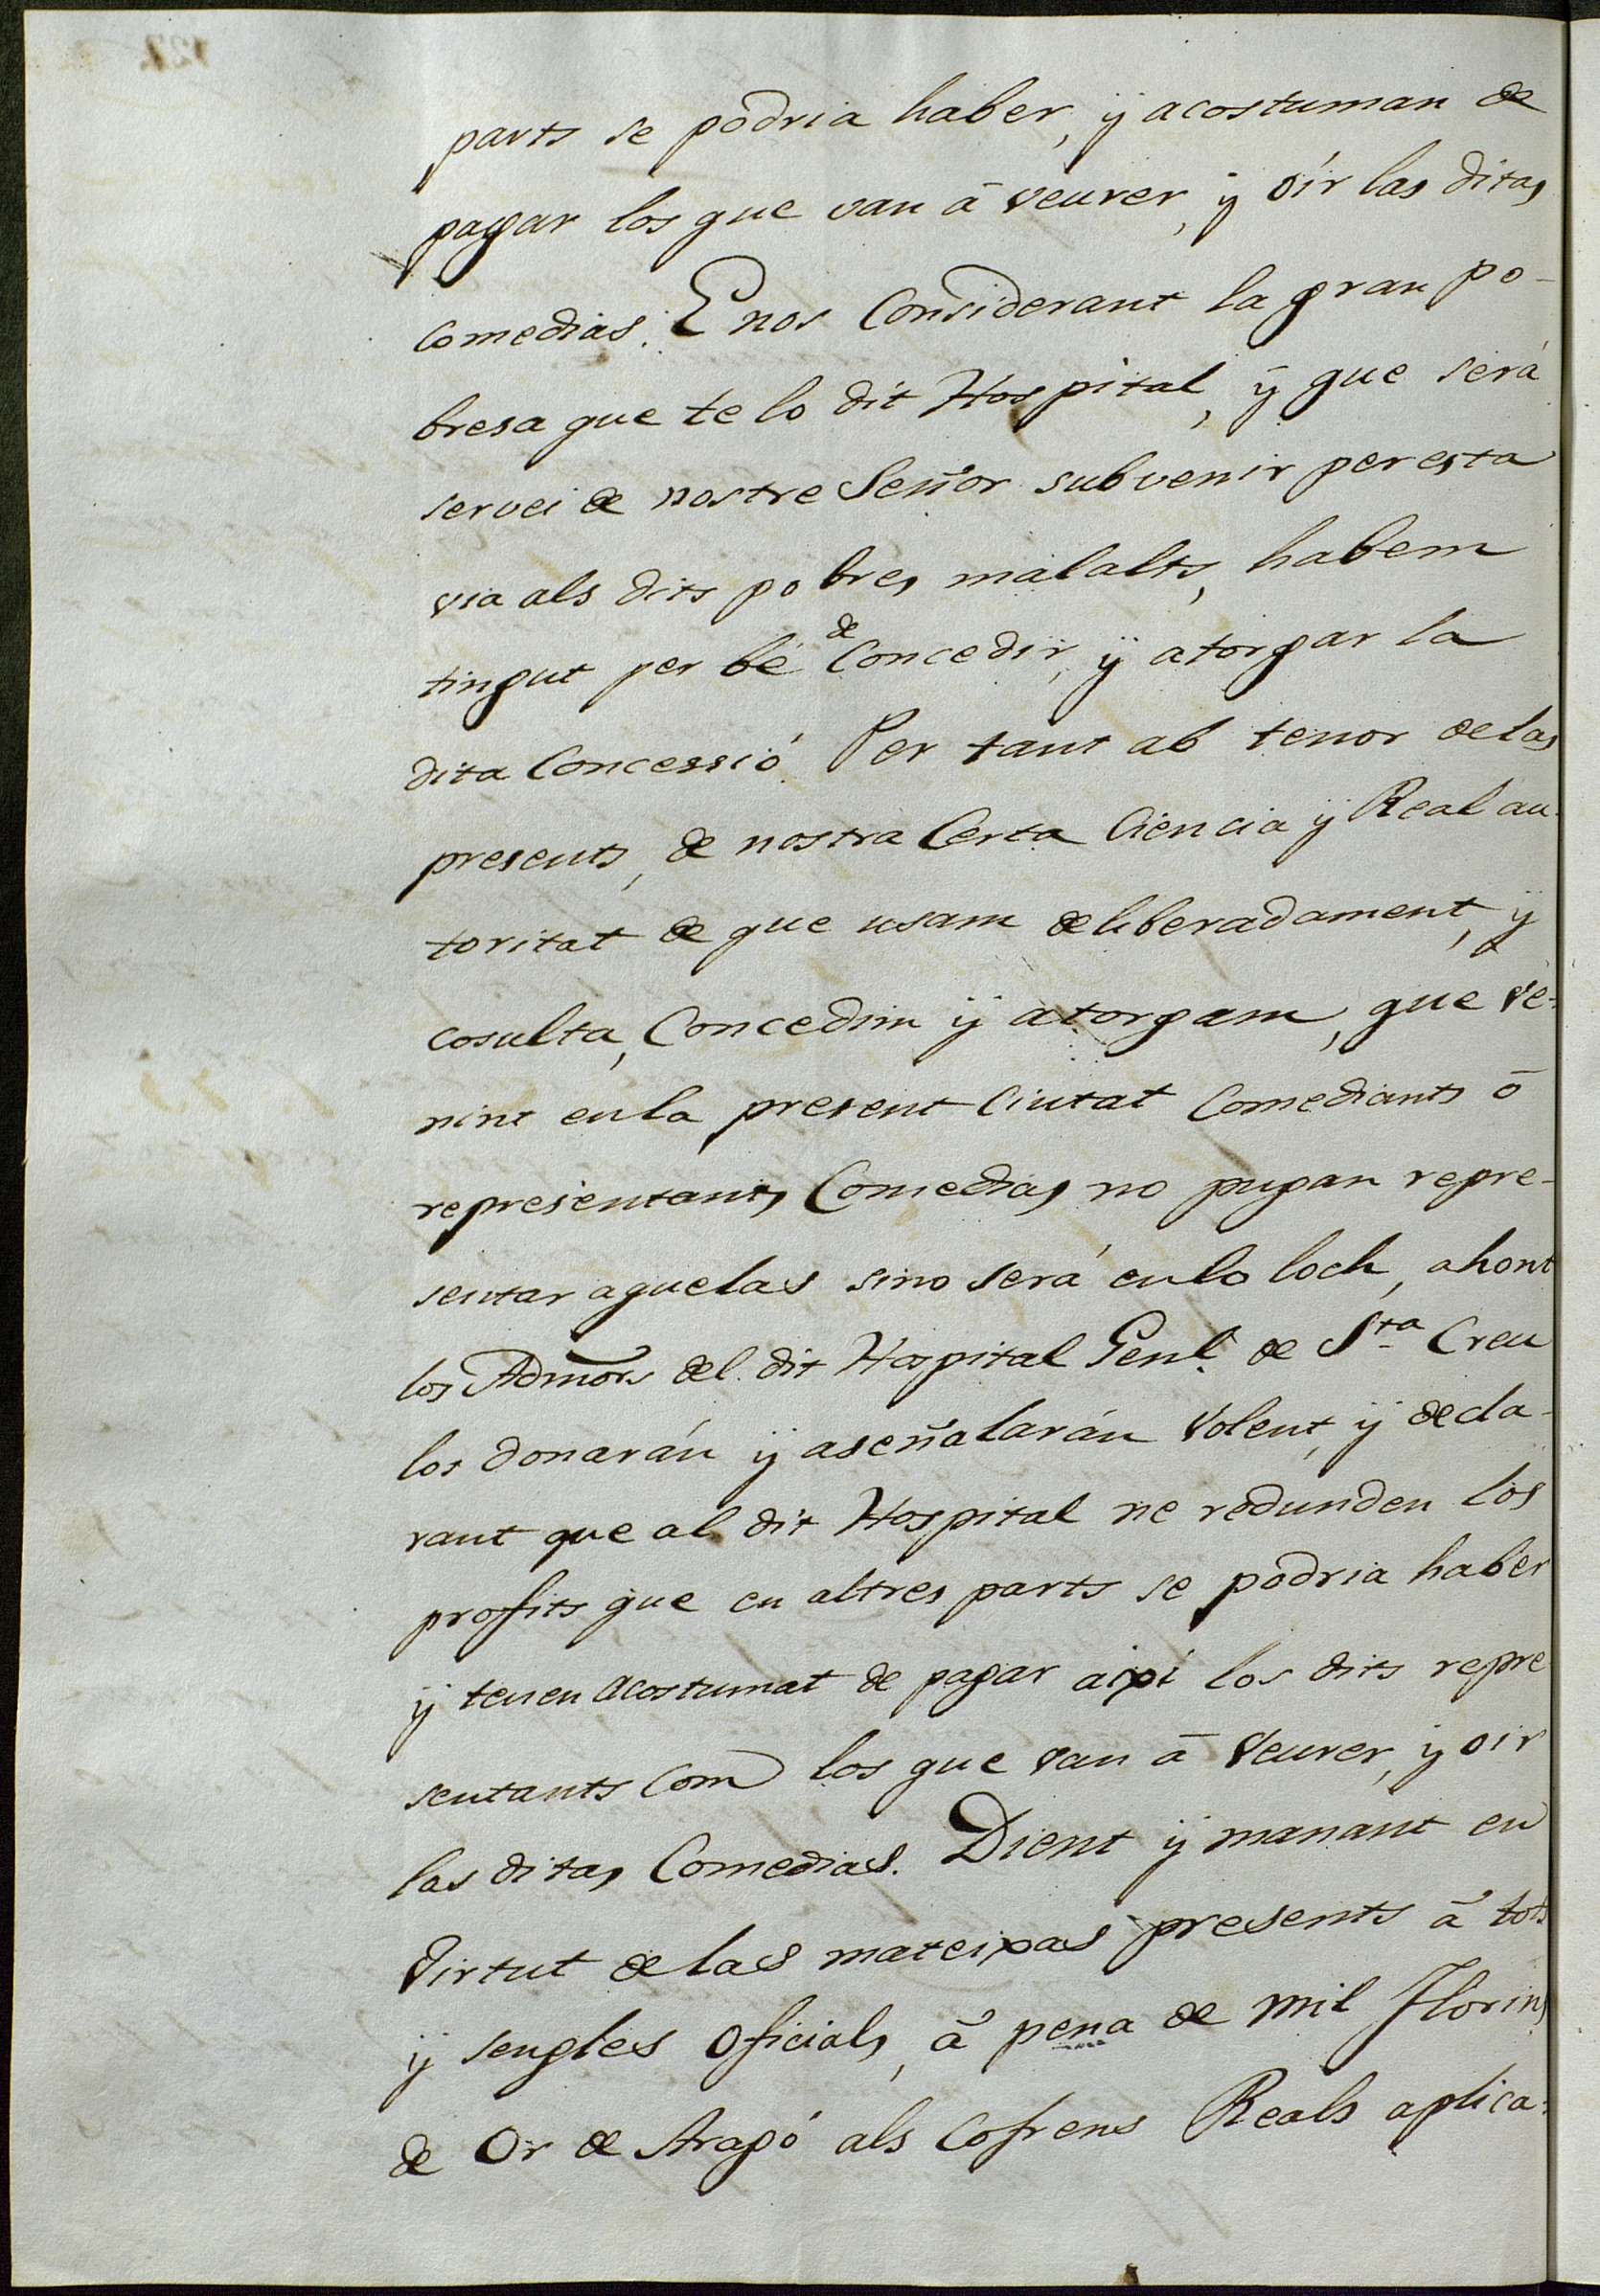 parts se podria haber, y acostuman de
pagar los que van á veurer, y oír las ditas
comedias. E nos Considerant la gran po-
bresa que te lo dit Hospital, y que será
servei de nostre Señor subvenir per esta
via als dits pobres malalts, habem
tingut per bé de Concedir, y atorgar la
dita Concessió. Per tant ab tenor de las
presents, de nostra Certa Ciencia y Real au-
toritat de que usam deliberadament, y
cosulta, Concedim y atorgam, que ve-
nint en la present Ciutat Comediants ó
representants Comedias no pugan repre-
sentar aquelas sino será en lo loch, ahont
los Admors. del dit Hospital Genl. de Sta. Creu
los donarán y aseñalarán Volent, y decla-
rant que al dit Hospital ne redunden los
profits que en altres parts se podria haber
y tenen acostumat de pagar aixi los dits repre
sentants Com los que van á Veurer, y oir
las ditas Comedias. Dient y manant en
Virtut de las mateixas presents á tots
y sengles Oficials, á pena de mil Florins
de Or de Aragó als Cofrens Reals aplica-